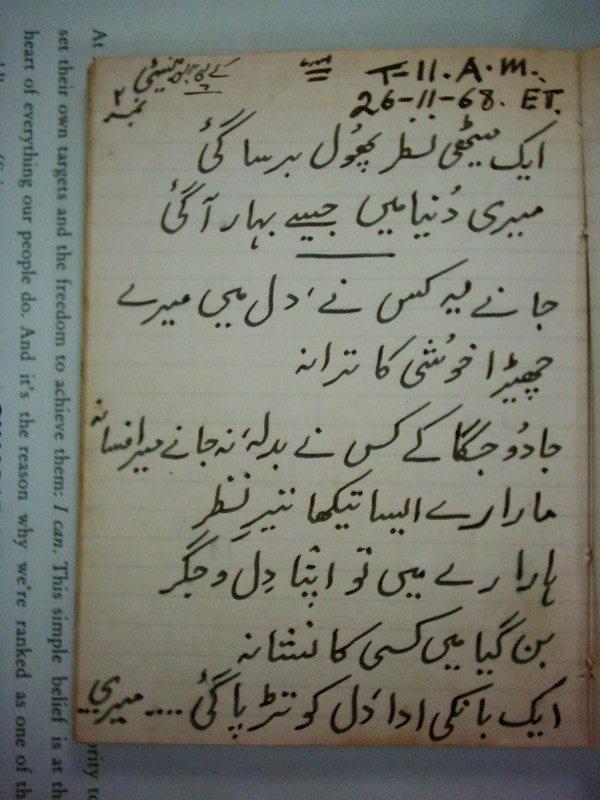 T-11. A.M.
26-11-68. ET.
نمبر ۲
ایک میٹھی نظر پھُول برسا گئی
میری دُنیا میں جیسے بہار آ گئی
جانے یہ کس نے، دل میں میرے
چھیڑا خوُشی کا ترانہ
جادُو جگا کے کس نے بدلہ، نہ جانے میرا فسانہ
مارا رے ایسا تیکھا تیرِ نظر
ہارا رے میں تو اپنا دِل و جگر
بن گیا میں کسی کا نشانہ
ایک بانکی ادا دل کو تڑپا گئی .... میری
At
set their own targets and the freedom to achieve them: I can. This simple belief is at th
heart of everything our people do. And it's the reason why we're ranked as one of th